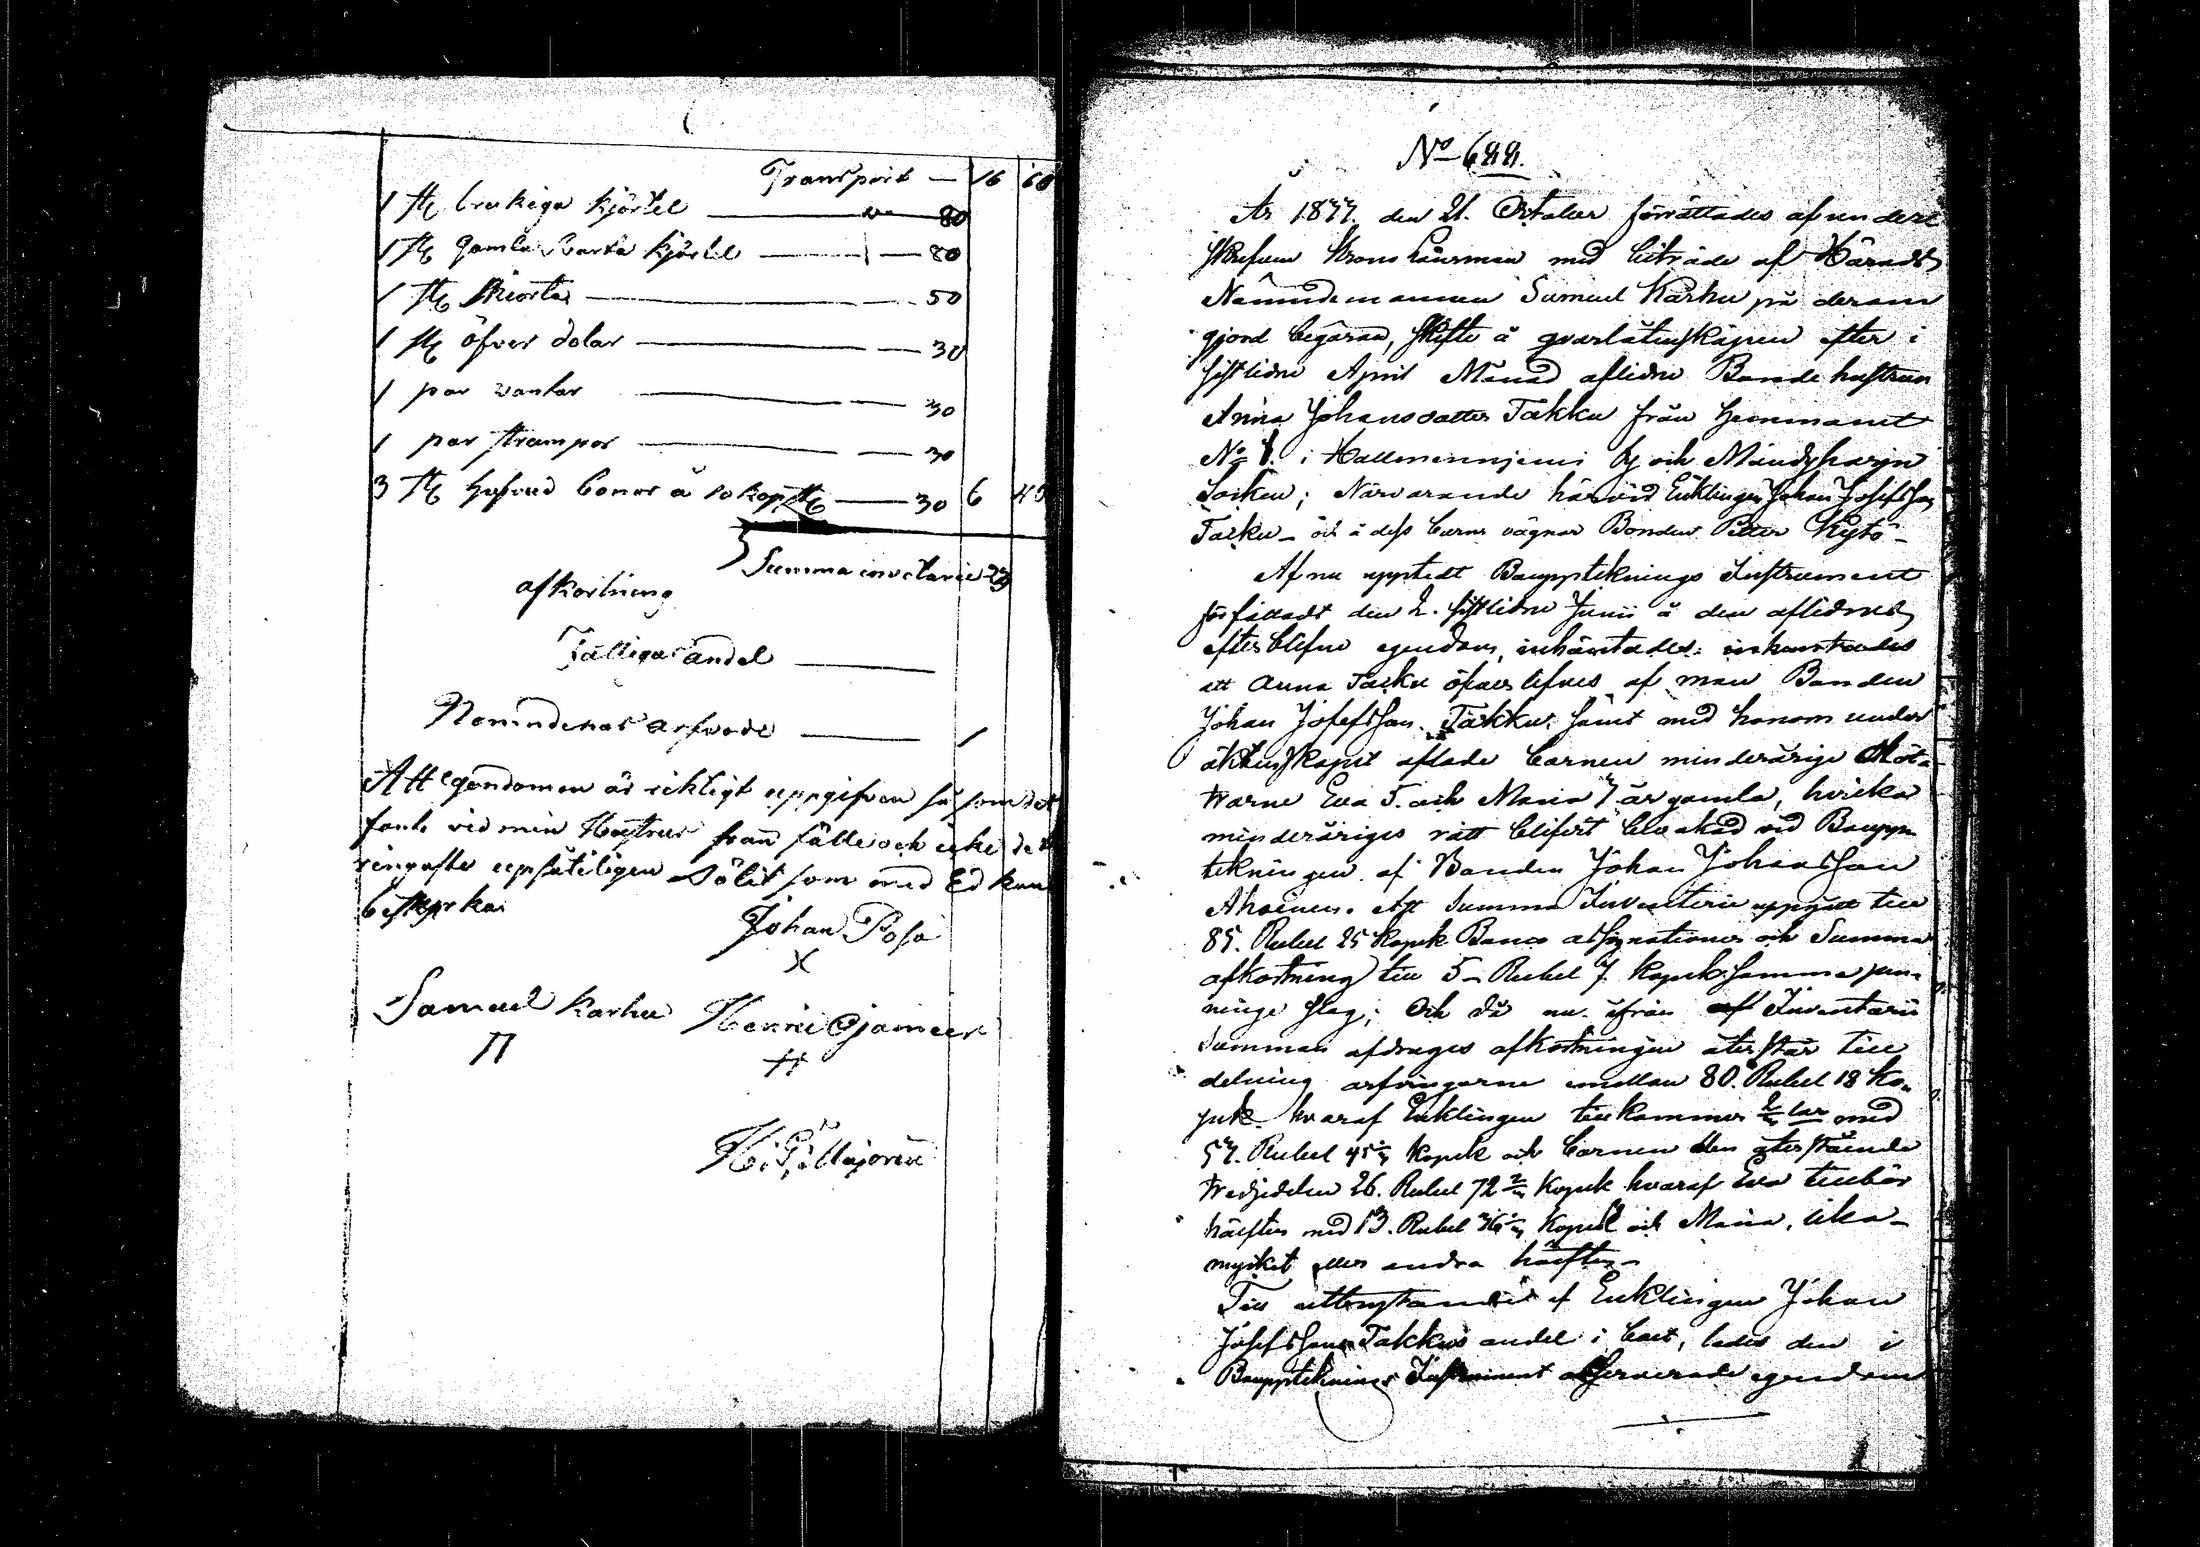 Transport — 16 60
1 st brukiga kjörtel — 80
1 st gamla svarta kjörtel — 80
1 st skiorta — 50
1 st öfver dolar — 30
1 par vantar — 30
1 par strumpor — 30
3 st hufvud bonor à 10 kop st — 30 6 40
Summa inventarie 23
afkortning
Fattigas andel —
Nemndenas arfvode — 1
Att egendomen är riktigt uppgifven så som det
fants vid min Hustrus från fälle och icke det
ringaste uppsåteligen dölit som med Ed kan
bestyrkas
Johan Poso
X
Samuel Karhu Henric Ojamees
H. P. Majorin
No 699.
År 1877. den 21. October förrättades af under
skrefven Krono Länsman med biträde af Härads
Nämndemannen Samuel Karhu på derom
gjord begäran, skifte å qvarlåtenskapen efter i
sistlidne April Månad aflidne Bonde hustrun
Anna Johansdotter Takku från Hemmanet
No 1. i Hallmennjemi by och Mändyharju
Socken; Närvarande härvid Enklingen Johan Josefsson
Tacku – och å dess barns vägnar Bonden Petter Kytö –
Af nu uppteedt Bouppteknings Instrument
författadt den 2. sistlidne Junii å den aflidnes
efterblefne egendom, inhämtades: inhämtades
att Anna Tacku öfverlefves af man Bonden
Johan Josefsson Takku. samt med honom under
äktenskapet aflade barnen minderårige Döt-
trarne Eva 5. och Maria 7 år gamla, hvilka
minderåriges rätt blifvit bevakad vid Boupp-
tekningen af Bonden Johan Johansson
Ahoinen. Att Summa Inventerie uppgått till
85. Rubel 25 Kopek Banco assignationer och Summa
afkortning till 5 – Rubel 7 kopek samma pen-
ninge slag; Och då nu ifrån af Inventarii
Summan afdrages afkortningen återstår till
delning arfvingarne emellan 80. Rubel 18 Ko-
pek hvaraf Enklingen tillkommer med
Rubel kopek och barnen den återstående
tredjedelen 26. Rubel 72 Kopek hvaraf Eva tillhör
hälften med 13. Rubel 36 Kopek och Maria, lika-
mycket eller andra hälften –
Till utbrytande af Enklingen Johan
Josefssons Takkus andel i boet, lades den i
Bouppteknings Instrument observerade egendom